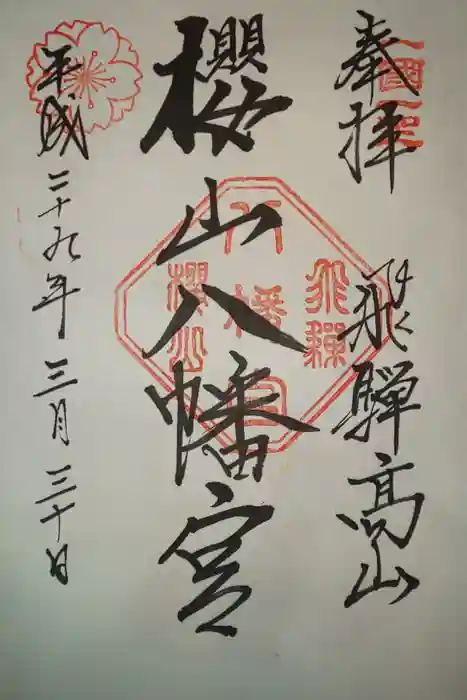 奉拝
飛騨高山
櫻山八幡宮
平成二十九年三月三十日
飛騨
八幡宮
櫻山